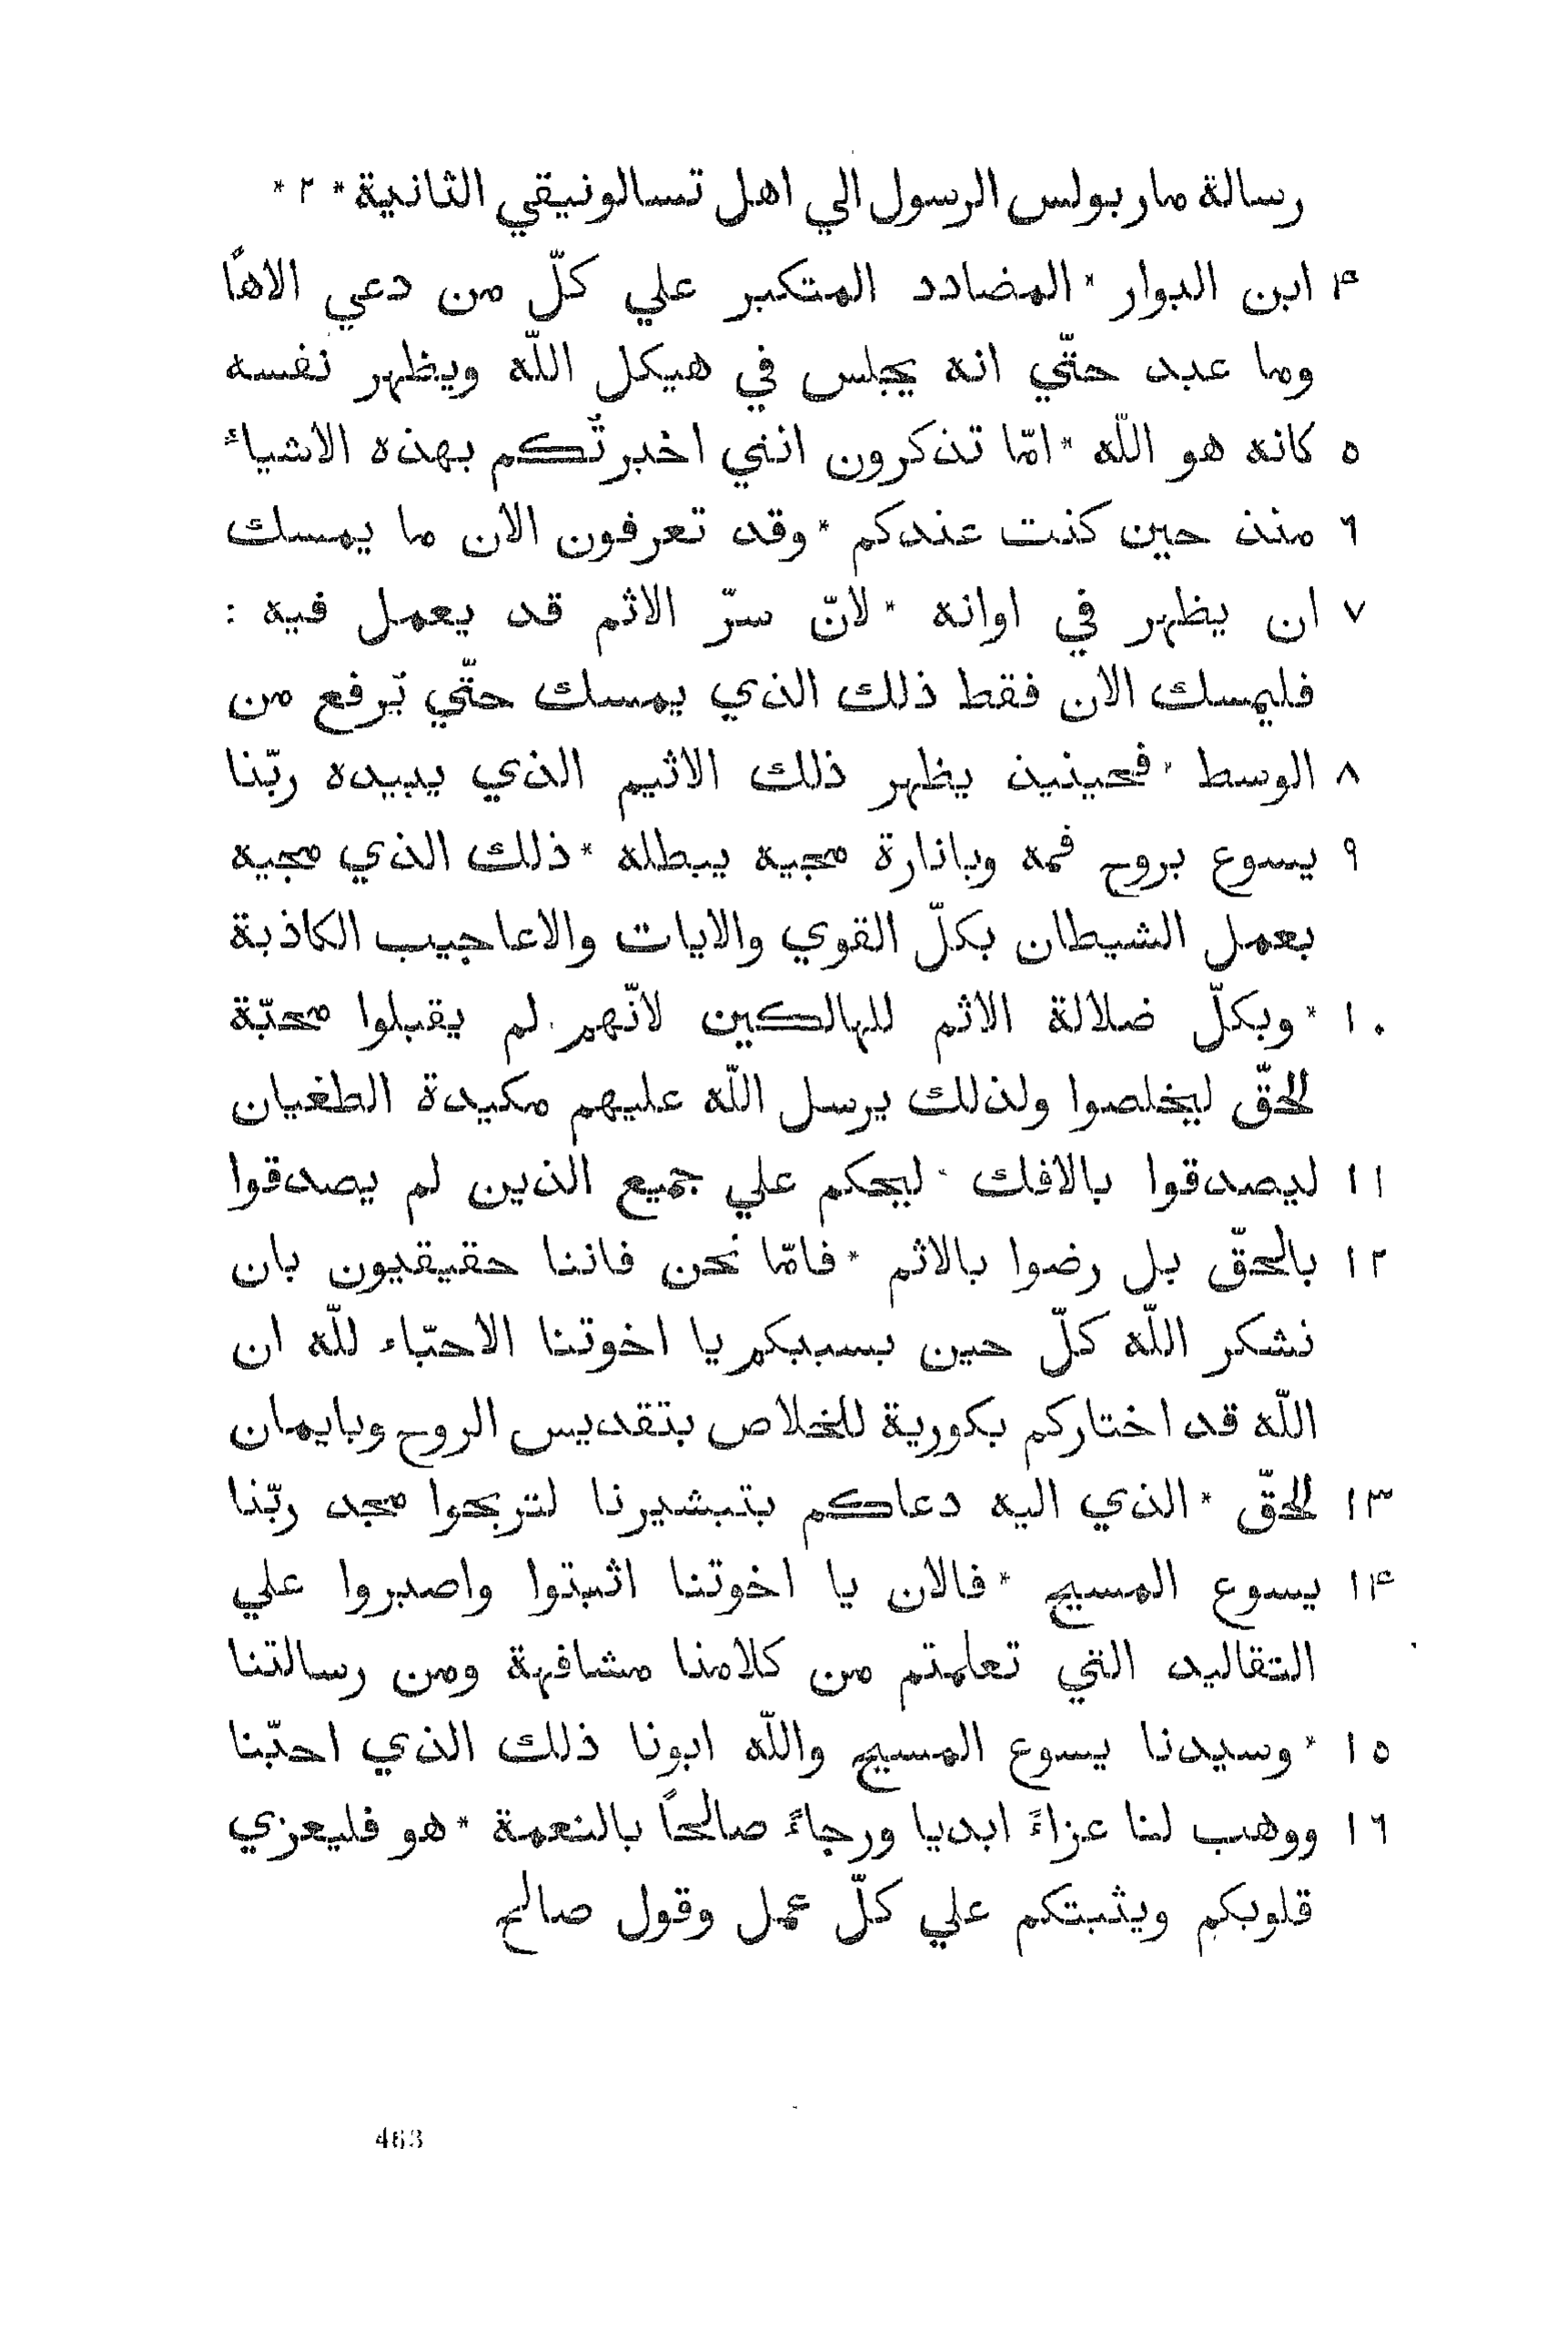 رسالة مار بولس الرسول الي اهل تسالونيقي الثانية * ٢ *
۴ ابن البوار * المضادد المتكبر علي كلّ من دعي الاهاً
وما عبد حتّي انه يجلس في هيكل اللّه ويظهر نفسه
٥ كانه هو اللّه * امّا تذكرون انني اخبرتُكم بهذه الاشياءً
٦ منذ حين كنت عندكم * وقد تعرفون الان ما يمسك
٧ ان يظهر في اوانه * لانّ سرّ الاثم قد يعمل فيه :
فليمسك الان فقط ذلك الذي يمسك حتّي يُرفع من
٨ الوسط * فحينيذ يظهر ذلك الاثيم الذي يبيده ربّنا
٩ يسوع بروح فمه وبانارة مجيه يبطله * ذلك الذي مجيه
بعمل الشيطان بكلّ القوي والايات والاعاجيب الكاذبة
١٠ * وبكلّ ضلالة الاثم للهالكين لانّهم لم يقبلوا محبّة
الحقّ ليخلصوا ولذلك يرسل اللّه عليهم مكيدة الطغيان
١١ ليصدقوا بالافك * ليحكم علي جميع الذين لم يصدقوا
١٢ بالحقّ بل رضوا بالاثم * فامّا نحن فاننا حقيقيون بان
نشكر اللّه كلّ حين بسببكم يا اخوتنا الاحبّاء للّه ان
اللّه قد اختاركم بكورية للخلاص بتقديس الروح وبايمان
١٣ الحقّ * الذي اليه دعاكم بتبشيرنا لتربحوا مجد ربّنا
١۴ يسوع المسيح * فالان يا اخوتنا اثبتوا واصبروا علي
التقاليد التي تعلمتم من كلامنا مشافهة ومن رسالتنا
١٥ * وسيدنا يسوع المسيح واللّه ابونا ذلك الذي احبّنا
١٦ ووهب لنا عزاءً ابديا ورجاءً صالحاً بالنعمة * هو فليعزي
قلوبكم ويثبتكم علي كلّ عمل وقول صالح
463